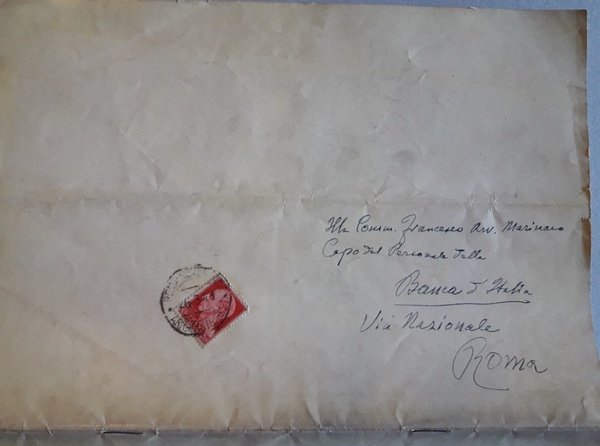 Ill. Comm. Francesco Avv. Marinaro
Capo del Personale della
Banca d'Italia
Via Nazionale
Roma